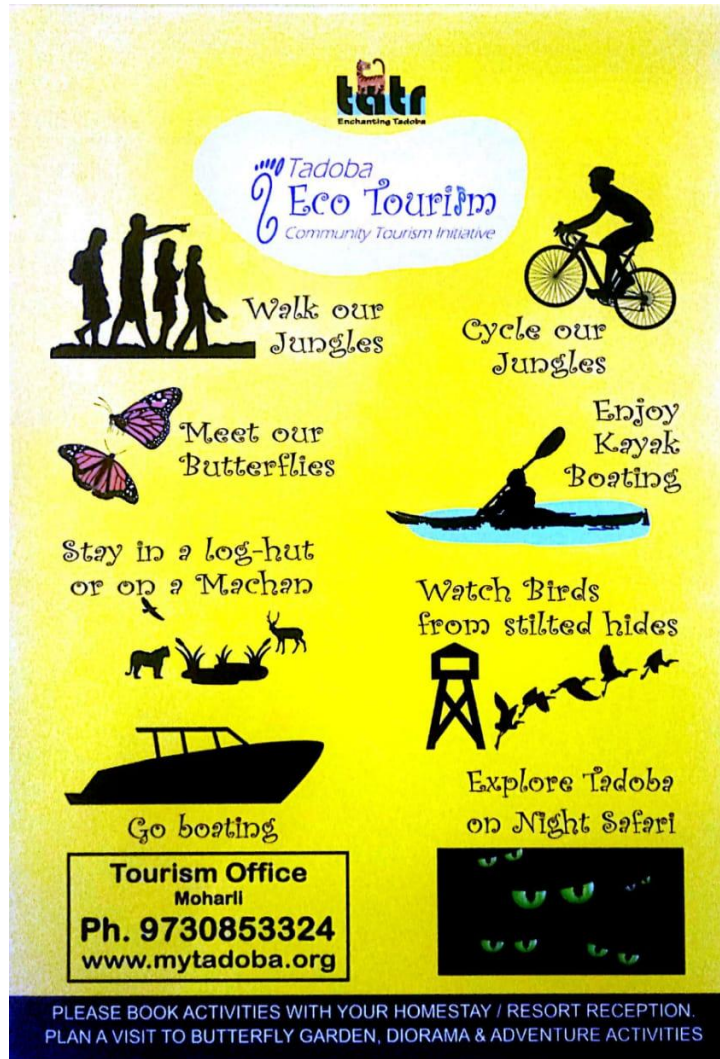 tatr
Enchanting Tadoba
Tadoba
Eco Tourism
Community Tourism Initiative
Walk our
Jungles
Cycle our
Jungles
Meet our
Butterflies
Enjoy
Kayak
Boating
Stay in a log-hut
or on a Machan
Watch Birds
from stilted hides
Go boating
Explore Tadoba
on Night Safari
Tourism Office
Moharli
Ph. 9730853324
www.mytadoba.org
PLEASE BOOK ACTIVITIES WITH YOUR HOMESTAY / RESORT RECEPTION.
PLAN A VISIT TO BUTTERFLY GARDEN, DIORAMA & ADVENTURE ACTIVITIES